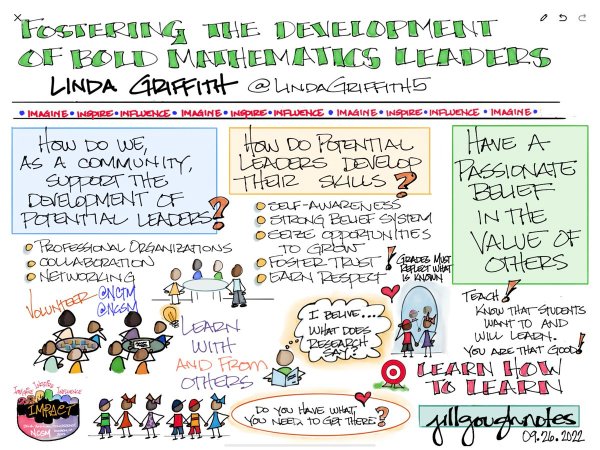 FOSTERING THE DEVELOPMENT
OF BOLD MATHEMATICS LEADERS
LINDA GRIFFITH @LINDAGRIFFITH5
• IMAGINE • INSPIRE • INFLUENCE • IMAGINE • INSPIRE • INFLUENCE • IMAGINE • INSPIRE • INFLUENCE • IMAGINE •
HOW DO WE,
AS A COMMUNITY,
SUPPORT THE
DEVELOPMENT OF
POTENTIAL LEADERS?
PROFESSIONAL ORGANIZATIONS
COLLABORATION
NETWORKING
VOLUNTEER @NCTM
@NCSM
HOW DO POTENTIAL
LEADERS DEVELOP
THEIR SKILLS?
SELF-AWARENESS
STRONG BELIEF SYSTEM
SEIZE OPPORTUNITIES
TO GROW
FOSTER TRUST
EARN RESPECT
! GRADES MUST
REFLECT WHAT
IS KNOWN
HAVE A
PASSIONATE
BELIEF
IN THE
VALUE OF
OTHERS
LEARN
WITH
AND FROM
OTHERS
I BELIVE....
WHAT DOES
RESEARCH
SAY?
TEACH!
KNOW THAT STUDENTS
WANT TO AND
WILL LEARN.
YOU ARE THAT GOOD!
LEARN HOW
TO LEARN
IMAGINE INSPIRE INFLUENCE
IMPACT
NCSM
DO YOU HAVE WHAT
YOU NEED TO GET THERE?
jillgoughnotes
09.26.2022